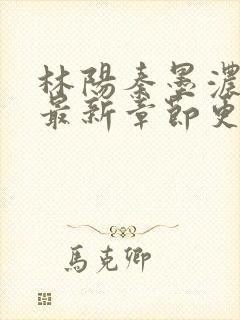 林陽秦墨濃
最新章節更
馬克卿